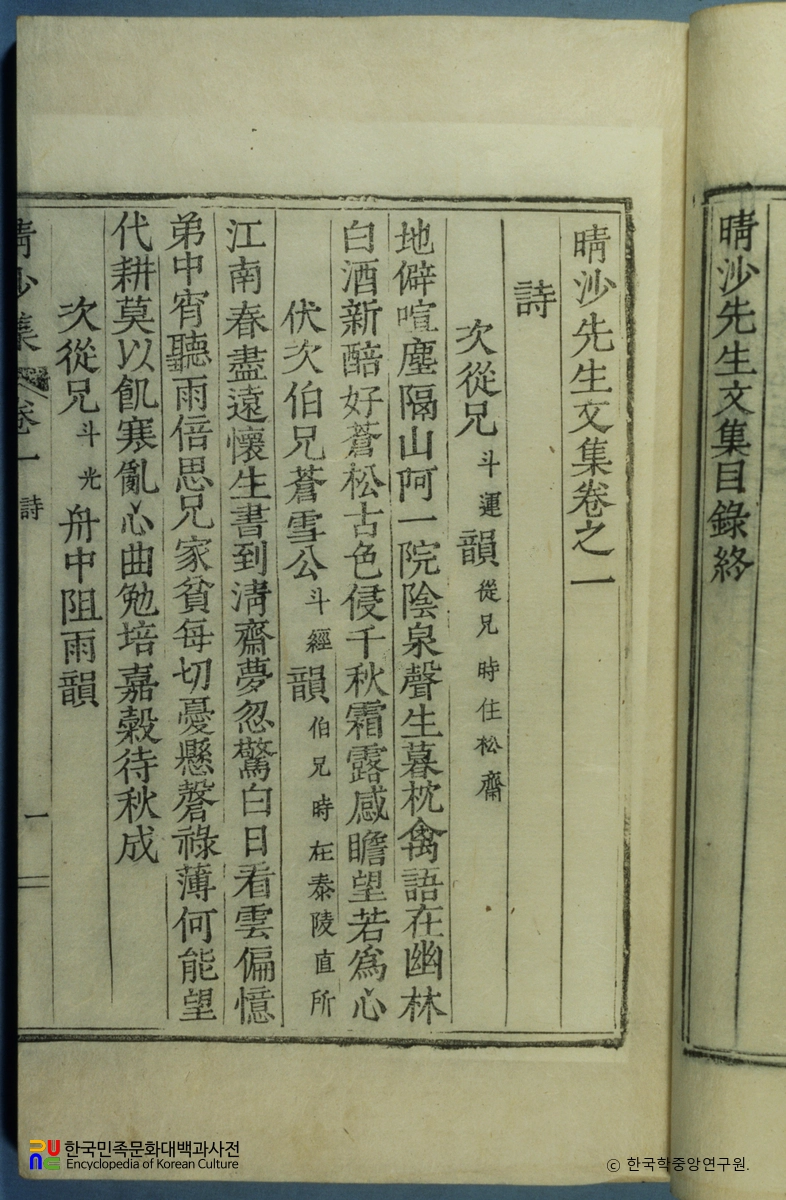 晴沙先生文集目錄終
晴沙先生文集卷之一
詩
次從兄斗運韻從兄時住松齋
地僻喧塵隔山阿一院陰泉聲生暮枕禽語在幽林
白酒新醅好蒼松古色侵千秋霜露感瞻望若爲心
伏次伯兄蒼雪公斗經韻伯兄時在泰陵直所
江南春盡遠懷生書到淸齋夢忽驚白日看雲偏憶
弟中宵聽雨倍思兄家貧每切憂懸磬祿薄何能望
代耕莫以飢寒亂心曲勉培嘉穀待秋成
次從兄斗光舟中阻雨韻
晴沙集 卷一 詩 一
한국민족문화대백과사전
Encyclopedia of Korean Culture
ⓒ 한국학중앙연구원.